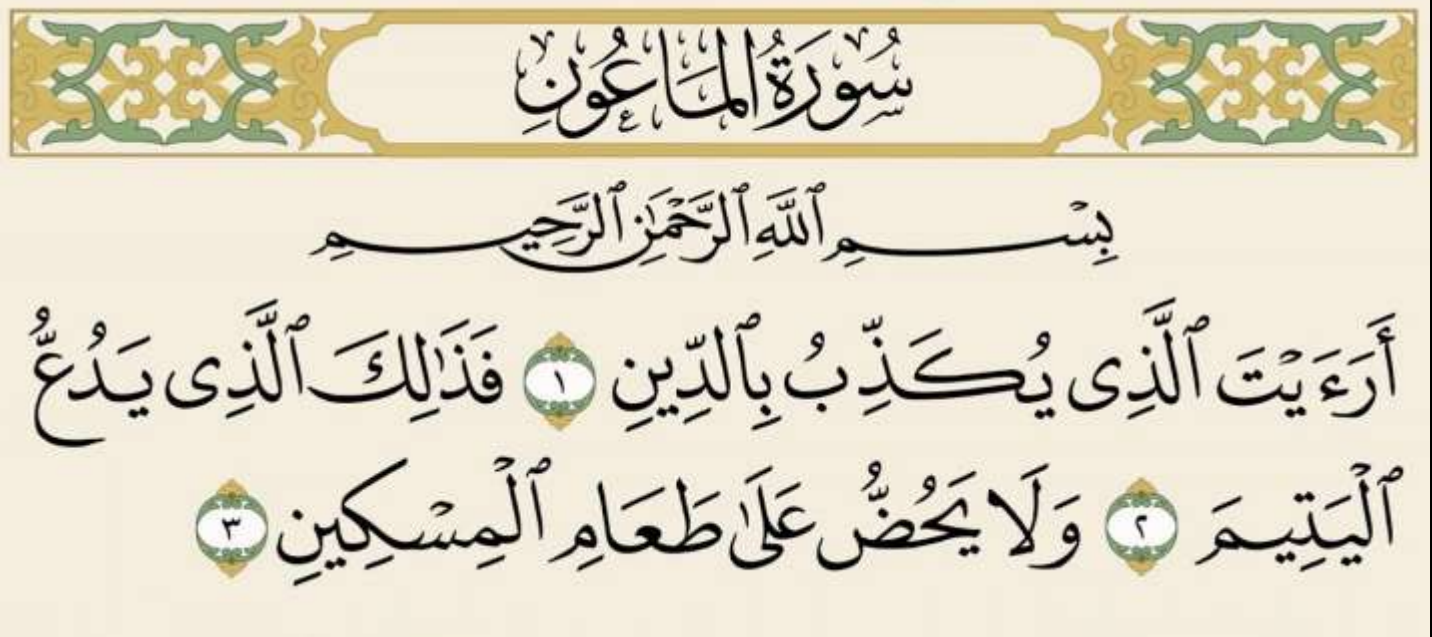 سُورَةُ المَاعُونِ
بِسْمِ ٱللَّهِ ٱلرَّحْمَٰنِ ٱلرَّحِيمِ
أَرَءَيْتَ ٱلَّذِى يُكَذِّبُ بِٱلدِّينِ ١ فَذَٰلِكَ ٱلَّذِى يَدُعُّ
ٱلْيَتِيمَ ٢ وَلَا يَحُضُّ عَلَىٰ طَعَامِ ٱلْمِسْكِينِ ٣